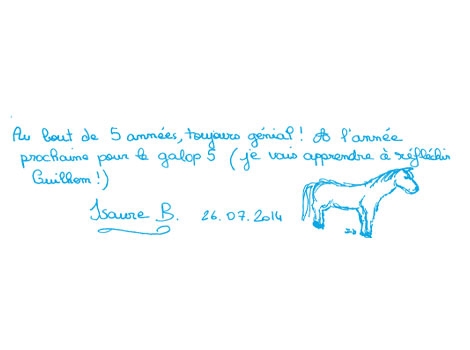 Au bout de 5 années, toujours génial ! A l'année
prochaine pour le galop 5 (je vais apprendre à réfléchir
Guilhem !)
Isaure B. 26.07.2014